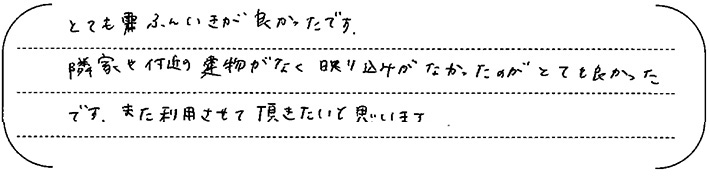 とても雰ふんいきが良かったです.
隣家や付近の建物がなく映り込みがなかったのがとても良かった
です. また利用させて頂きたいと思います